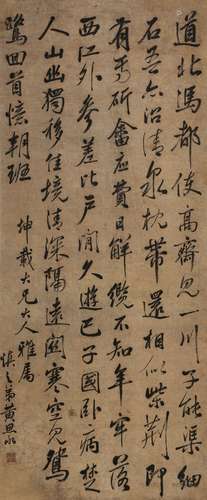 道北馮都使高齋見一川子能渠細
石吾亦沼清泉枕帶還相似柴荊即
有焉斫畬應費日解纜不知年牢落
西江外參差北戶間久遊巴子國臥病楚
人山幽獨移佳境清深隔遠關寒空見鴛
鷺回首憶朝班
坤載大兄大人雅屬
慎之弟黃思永